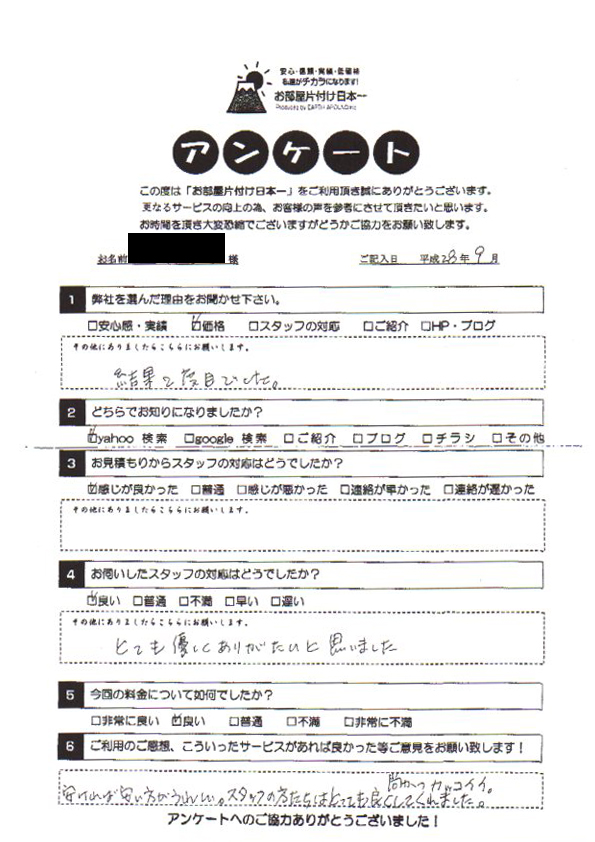 安心・信頼・実績・低価格
私達がチカラになります!
お部屋片付け日本一
Produced by EARTH AROUND inc
アンケート
この度は「お部屋片付け日本一」をご利用頂き誠にありがとうございます。
更なるサービスの向上の為、お客様の声を参考にさせて頂きたいと思います。
お時間を頂き大変恐縮でございますがどうかご協力をお願い致します。
お名前 様 ご記入日 平成28年9月
1 弊社を選んだ理由をお聞かせ下さい。
□安心感・実績 ☑価格 □スタッフの対応 □ご紹介 □HP・ブログ
その他にありましたらこちらにお願いします。
結果2度目でした。
2 どちらでお知りになりましたか?
☑yahoo 検索 □google 検索 □ご紹介 □ブログ □チラシ □その他
3 お見積もりからスタッフの対応はどうでしたか?
☑感じが良かった □普通 □感じが悪かった □連絡が早かった □連絡が遅かった
その他にありましたらこちらにお願いします。
4 お伺いしたスタッフの対応はどうでしたか?
☑良い □普通 □不満 □早い □遅い
その他にありましたらこちらにお願いします。
とても優しくありがたいと思いました
5 今回の料金について如何でしたか?
□非常に良い ☑良い □普通 □不満 □非常に不満
6 ご利用のご感想、こういったサービスがあれば良かった等ご意見をお願い致します!
尚かつカッコイイ。
安ければ安い方がうれしい。スタッフの方たちはとっても良くしてくれました。
アンケートへのご協力ありがとうございました!